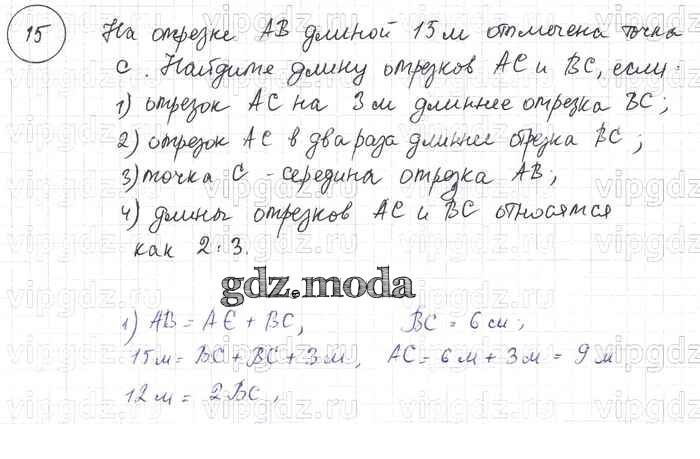 15
На отрезке АВ длиной 15 м отмечена точка
С. Найдите длину отрезков АС и ВС, если:
1) отрезок АС на 3 м длиннее отрезка ВС;
2) отрезок АС в два раза длиннее отрезка ВС;
3) точка С - середина отрезка АВ;
4) длины отрезков АС и ВС относятся
как 2:3.
gdz.moda
1) АВ = АС + ВС, ВС = 6 см;
15 м = ВС + ВС + 3 м, АС = 6 м + 3 м = 9 м
12 м = 2ВС,
vipgdz.ru